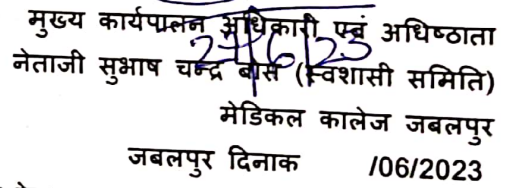 मुख्य कार्यपालन अधिकारी एवं अधिष्ठाता
27/6/23
नेताजी सुभाष चन्द्र बोस (स्वशासी समिति)
मेडिकल कालेज जबलपुर
जबलपुर दिनाक /06/2023